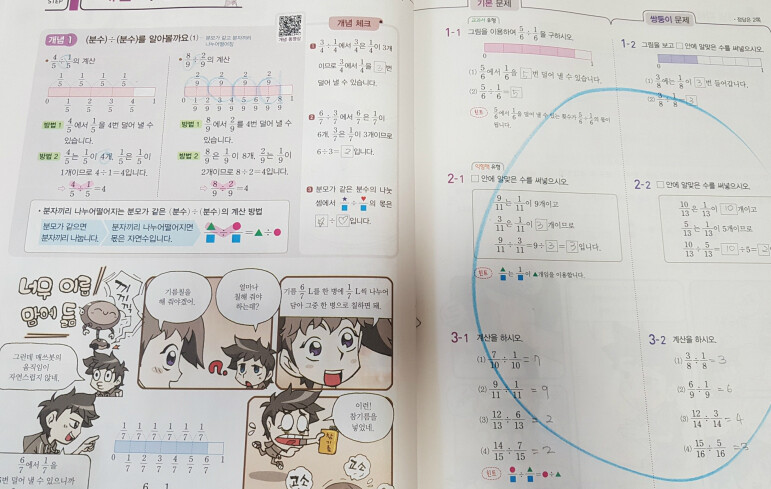 STEP
개념 1 (분수)÷(분수)를 알아볼까요(1) - 분모가 같고 분자끼리
나누어떨어짐
개념 동영상
• 4/5÷1/5의 계산
1/5 1/5 1/5 1/5
0 1/5 2/5 3/5 4/5 1
방법 1 4/5에서 1/5을 4번 덜어 낼 수
있습니다.
방법 2 4/5는 1/5이 4개, 1/5은 1/5이
1개이므로 4÷1=4입니다.
⇨ 4/5÷1/5=4
• 8/9÷2/9의 계산
2/9 2/9 2/9 2/9
0 1/9 2/9 3/9 4/9 5/9 6/9 7/9 8/9 1
방법 1 8/9에서 2/9를 4번 덜어 낼 수
있습니다.
방법 2 8/9은 1/9이 8개, 2/9는 1/9이
2개이므로 8÷2=4입니다.
⇨ 8/9÷2/9=4
• 분자끼리 나누어떨어지는 분모가 같은 (분수)÷(분수)의 계산 방법
분모가 같으면
분자끼리 나눕니다.
분자끼리 나누어떨어지면
몫은 자연수입니다.
▲/■÷●/■=▲÷●
개념 체크
1 3/4÷1/4에서 3/4은 1/4이 3개
이므로 3/4에서 1/4을 3번
덜어 낼 수 있습니다.
2 6/7÷3/7에서 6/7은 1/7이
6개, 3/7은 1/7이 3개이므로
6÷3=2입니다.
3 분모가 같은 분수의 나눗
셈에서 ★/■÷♥/■의 몫은
☆÷♡입니다.
너무 이름
맘에 듦
끼기긱
기름칠을
해 줘야겠어.
얼마나
칠해 줘야
하는데?
기름 6/7 L를 한 병에 1/7 L씩 나누어
담아 그중 한 병으로 칠하면 돼.
그런데 매쓰봇의
움직임이
자연스럽지 않네.
1/7 1/7 1/7 1/7 1/7 1/7
0 1/7 2/7 3/7 4/7 5/7 6/7 1
6/7에서 1/7을
6번 덜어 낼 수 있으니까
이런!
참기름을
넣었네.
참기름
고소
고소
기본 문제
교과서 유형
1-1 그림을 이용하여 5/6÷1/6을 구하시오.
0 1
(1) 5/6에서 1/6을 5번 덜어 낼 수 있습니다.
(2) 5/6÷1/6=5
힌트 5/6에서 1/6을 덜어 낼 수 있는 횟수가 5/6÷1/6의 몫이
됩니다.
쌍둥이 문제
• 정답은 2쪽
1-2 그림을 보고 □ 안에 알맞은 수를 써넣으시오.
0 1
(1) 3/8에는 1/8이 3번 들어갑니다.
(2) 3/8÷1/8=3
익힘책 유형
2-1 □ 안에 알맞은 수를 써넣으시오.
9/11는 1/11이 9개이고
3/11은 1/11이 3개이므로
9/11÷3/11=9÷3=3입니다.
힌트 ▲/■는 1/■이 ▲개임을 이용합니다.
2-2 □ 안에 알맞은 수를 써넣으시오.
10/13은 1/13이 10개이고
5/13는 1/13이 5개이므로
10/13÷5/13=10÷5=2
3-1 계산을 하시오.
(1) 7/10÷1/10=7
(2) 9/11÷1/11=9
(3) 12/13÷6/13=2
(4) 14/15÷7/15=2
힌트 ●/■÷▲/■=●÷▲
3-2 계산을 하시오.
(1) 3/8÷1/8=3
(2) 6/9÷1/9=6
(3) 12/14÷3/14=4
(4) 15/16÷5/16=3